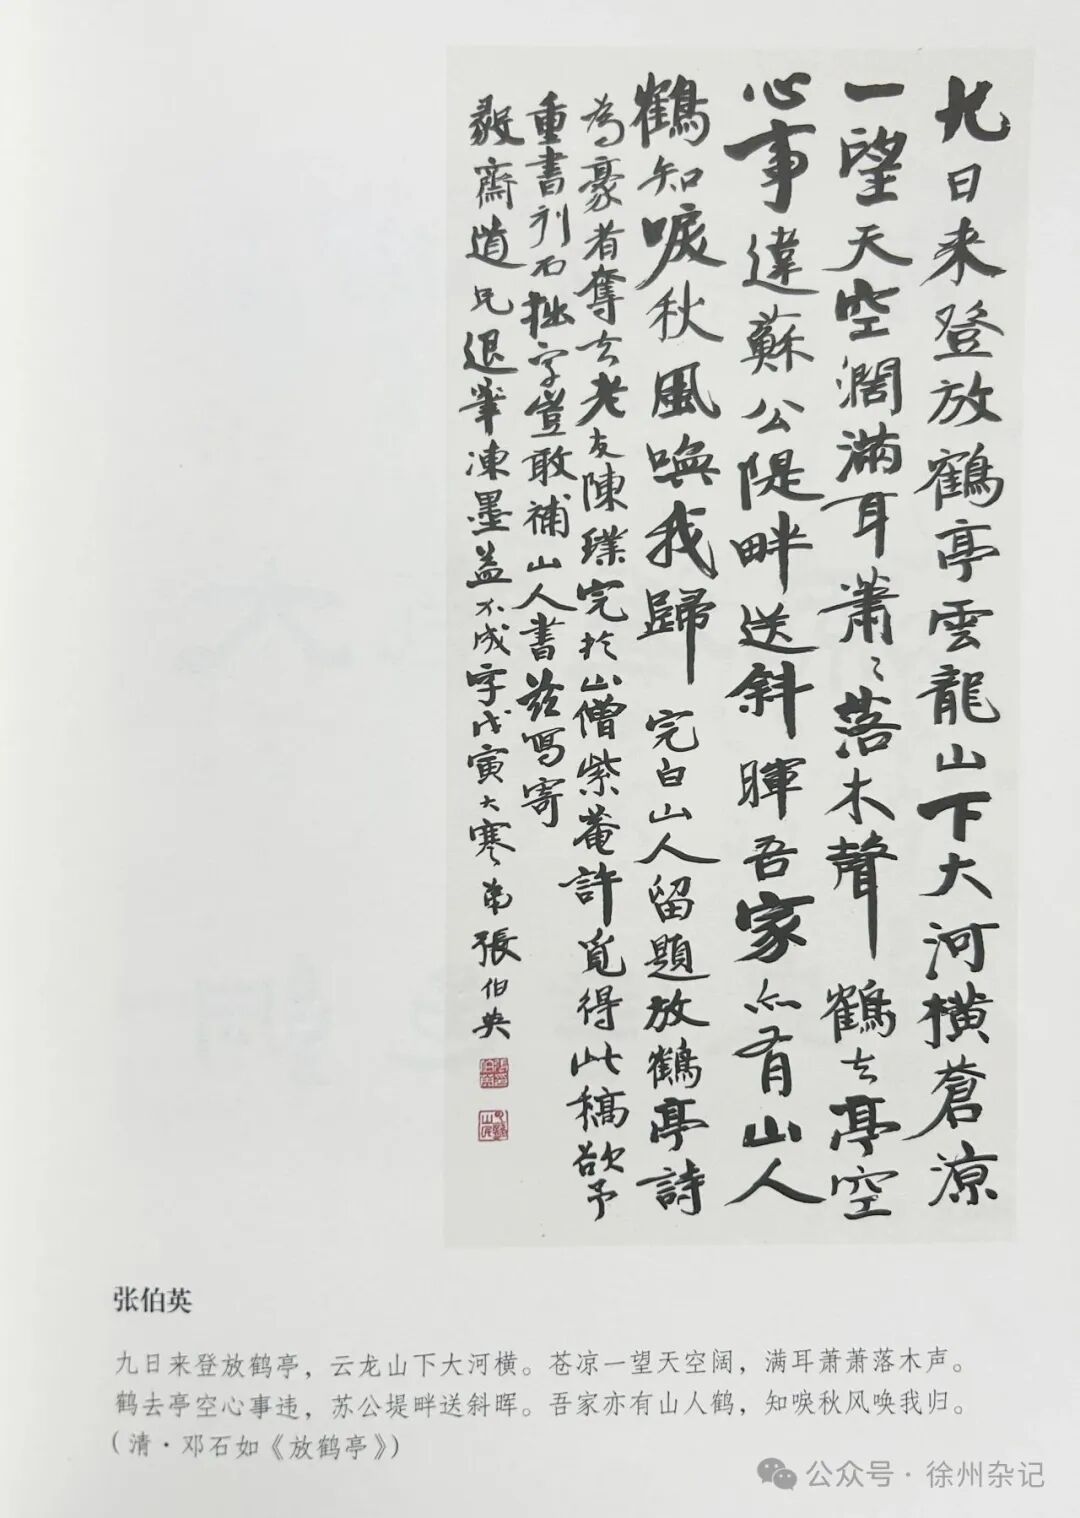 九日来登放鶴亭雲龍山下大河横蒼涼
一望天空濶滿耳蕭〻落木聲鶴去亭空
心事違蘇公隄畔送斜暉吾家亦有山人
鶴知唳秋風喚我歸 完白山人留題放鶴亭詩
為豪者奪去老友陳璞完於山僧紫菴許覓得此稿欲予
重書刊石拙字豈敢補山人書兹寫寄
毅齋道兄退筆凍墨益不成字戊寅大寒弟張伯英
张伯英
九日来登放鹤亭，云龙山下大河横。苍凉一望天空阔，满耳萧萧落木声。
鹤去亭空心事违，苏公堤畔送斜晖。吾家亦有山人鹤，知唳秋风唤我归。
(清·邓石如《放鹤亭》)
公众号·徐州杂记